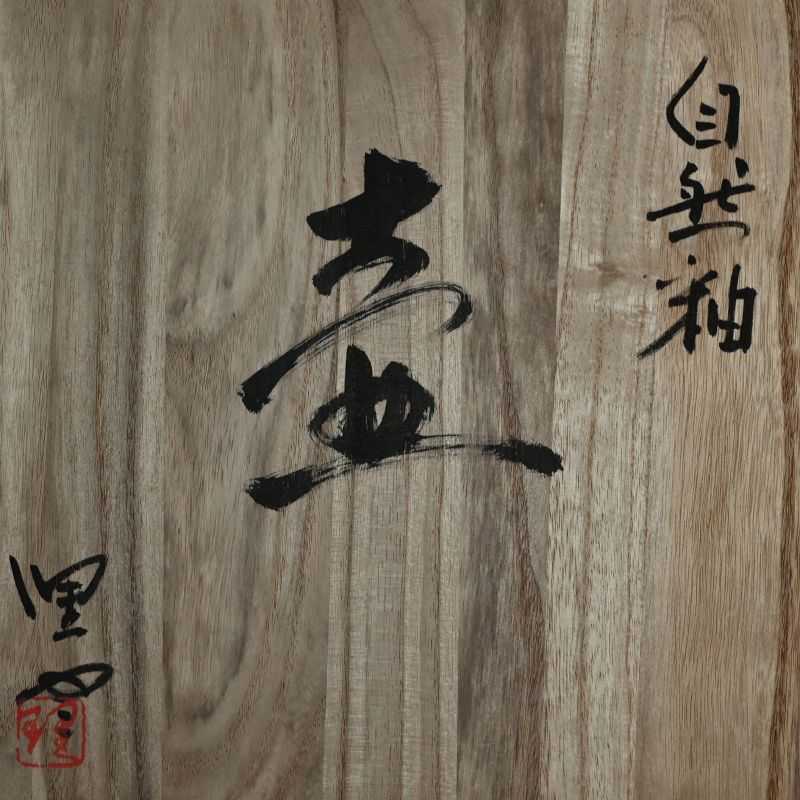 自然釉
壺